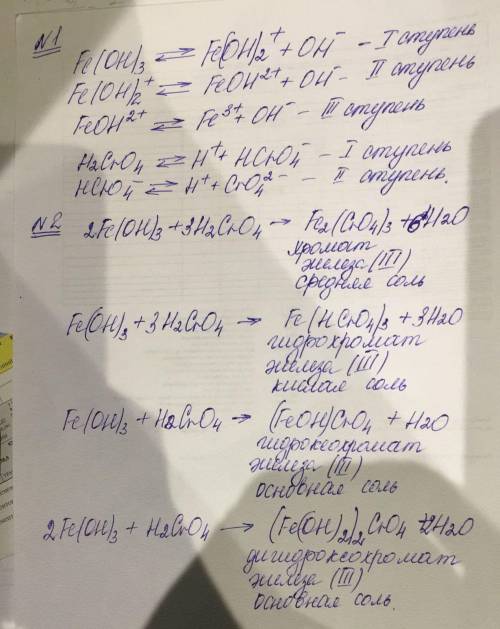 N1
Fe(OH)3 ⇄ Fe(OH)2⁺ + OH⁻ – I ступень
Fe(OH)2⁺ ⇄ FeOH²⁺ + OH⁻ – II ступень
FeOH²⁺ ⇄ Fe³⁺ + OH⁻ – III ступень
H2CrO4 ⇄ H⁺ + HCrO4⁻ – I ступень
HCrO4⁻ ⇄ H⁺ + CrO4²⁻ – II ступень.
N2 2Fe(OH)3 + 3H2CrO4 → Fe2(CrO4)3 + 6H2O
хромат
железа (III)
средняя соль
Fe(OH)3 + 3H2CrO4 → Fe(HCrO4)3 + 3H2O
гидрохромат
железа (III)
кислая соль
Fe(OH)3 + H2CrO4 → (FeOH)CrO4 + H2O
гидроксохромат
железа (III)
основная соль
2Fe(OH)3 + H2CrO4 → (Fe(OH)2)2CrO4 + 2H2O
дигидроксохромат
железа (III)
основная соль.